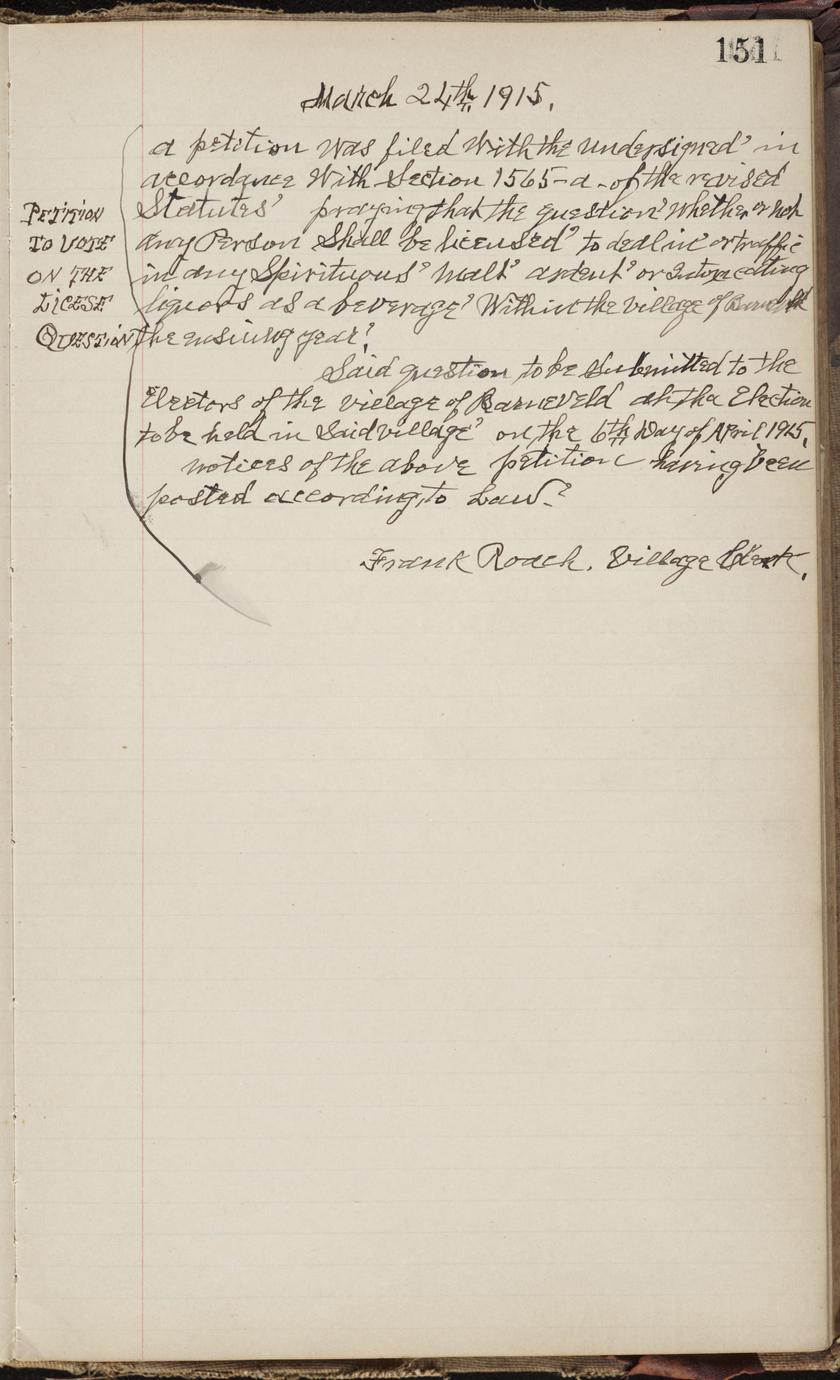 151
March 24th, 1915.
a petition was filed With the undersigned' in
accordance With Section 1565-a-of the revised
Statutes' praying that the question' Whether or not
any Person Shall be licensed' to deal in' or traffic
in any Spirituous' Malt' ardent' or Intoxicating
liquors as a beverage' Within the village of Barneveld
the ensuing year?
Said question to be Submitted to the
Electors of the village of Barneveld at the Election
to be held in Said village' on the 6th Day of April 1915.
notices of the above petition having been
posted according to Law.
Frank Roach. Village Clerk.
PETITION
TO VOTE
ON THE
LICESE
QUESTION